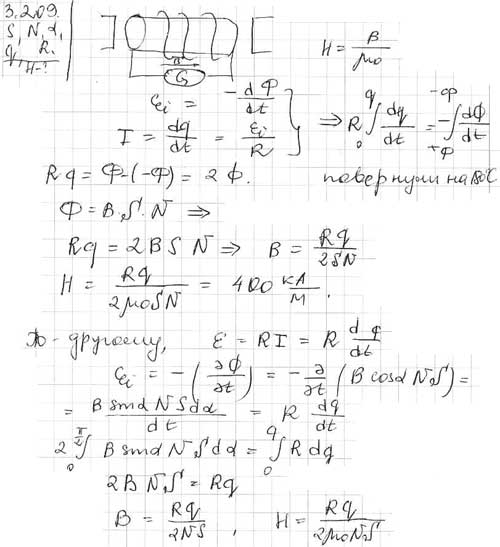 3.209.
S, N, d,
q, R.
H-?
B
G
H = B/μ₀
ε_i = -dΦ/dt
I = dq/dt = ε_i/R
⇒ R ∫₀^q dq/dt = -∫_{+Φ}^{-Φ} dΦ/dt
Rq = Φ-(-Φ) = 2Φ. повернули на 180°C
Φ = B·S·N ⇒
Rq = 2BSN ⇒ B = Rq/2SN
H = Rq/2μ₀SN = 400 кА/м.
По-другому, ε = RI = R dq/dt
ε_i = -(∂Φ/∂t) = -∂/∂t (B cosα NS) =
= B sinα NS dα/dt = R dq/dt
2 ∫₀^{π/2} B sinα NS dα = ∫₀^q R dq
2B NS = Rq
B = Rq/2NS, H = Rq/2μ₀NS